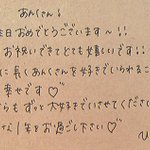 あんくさん!
日おめでとうございます〜!!
お祝いできてとても嬉しいです!!
に長くあんくさんを好きでいられること
幸せです♡
らもずっと大好きでいさせてください
な1年をお過ごし下さい♡